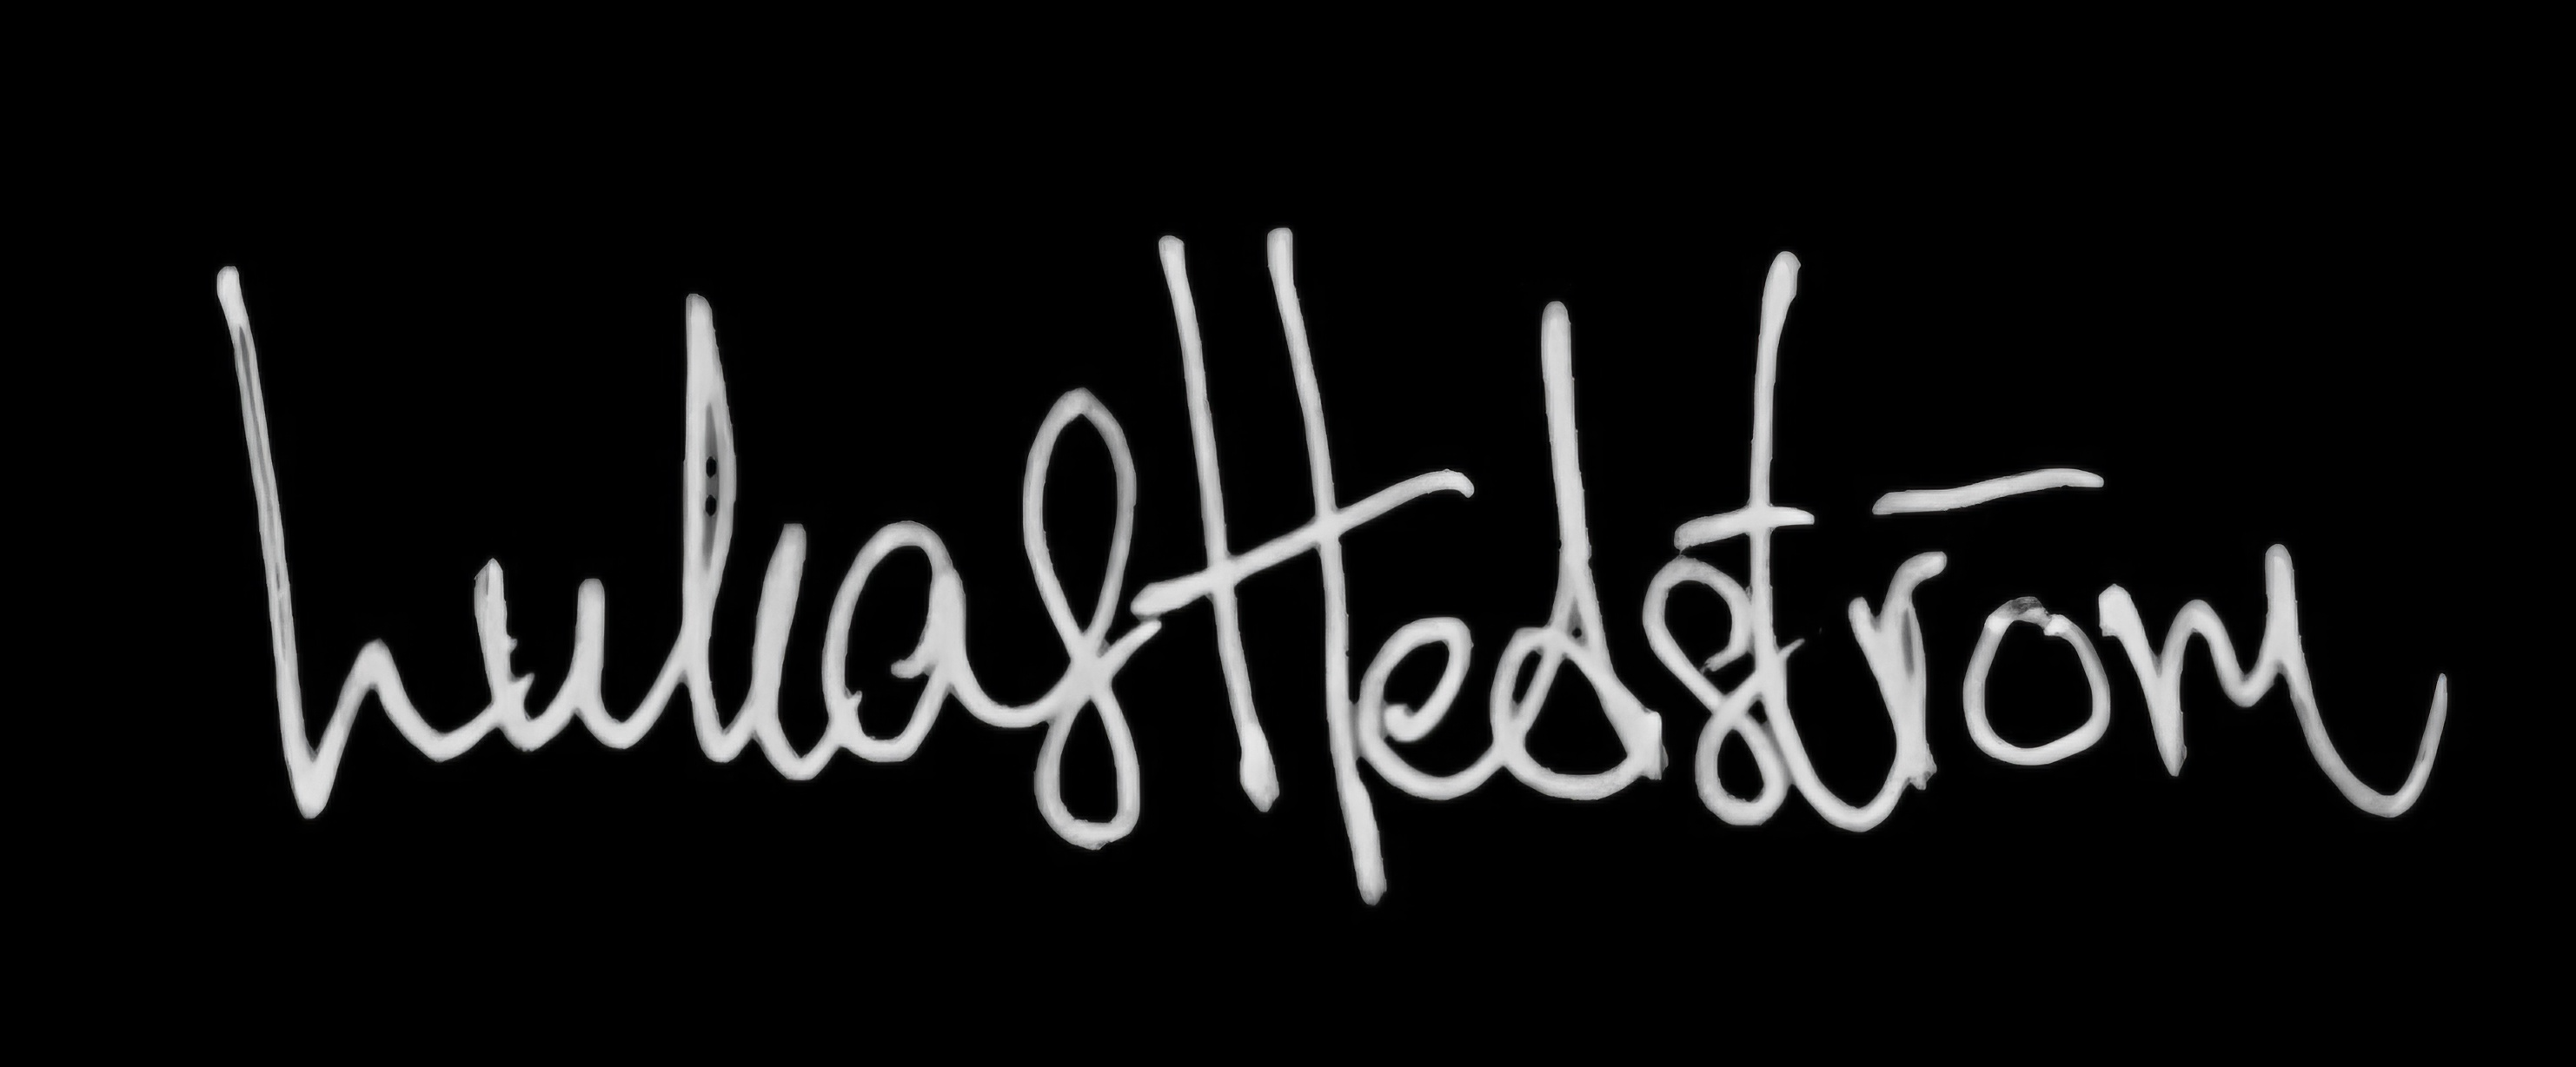 Lukas Hedström